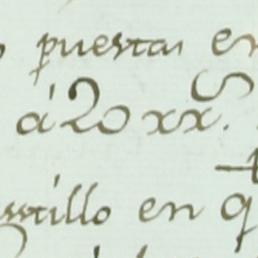 puestas en
á 20 xx.
stillo en q